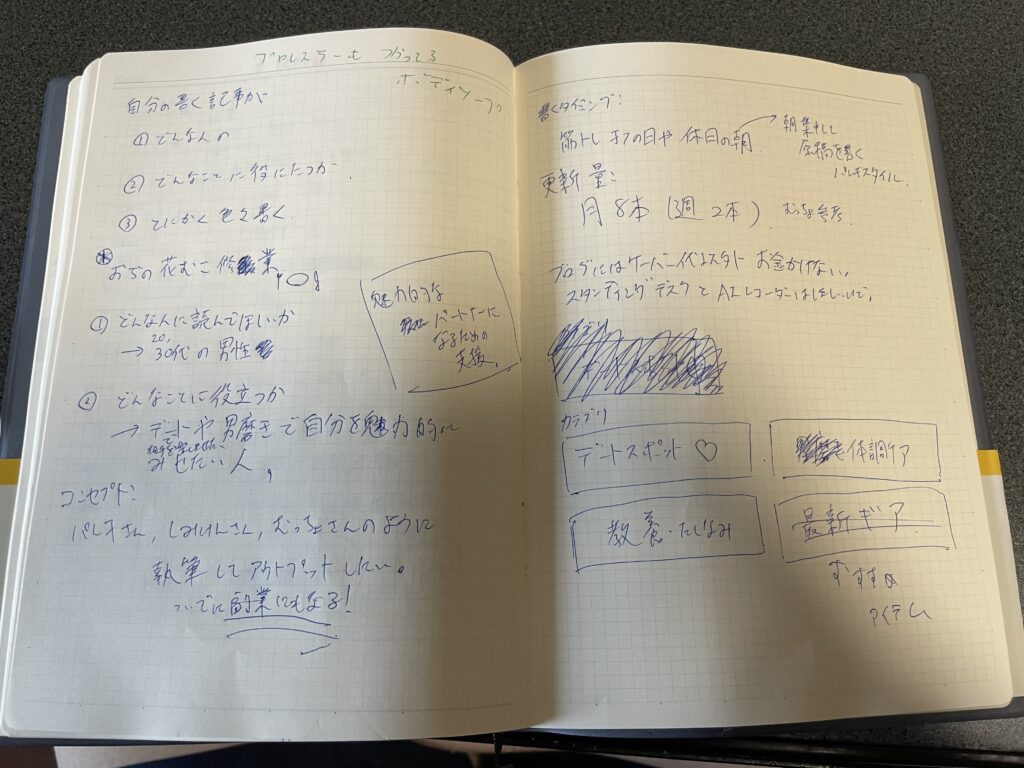 プロレスラーも つかってる
ボディソープ
自分の書く記事が
① どんな人の
② どんなことに役にたつか
③ とにかく色々書く
おぢの花むこ修業
① どんな人に読んでほしいか
20,
→ 30代の男性
② どんなことに役立つか
→ デートや男磨きで自分を魅力的に
みせたい人,
魅力的な
パートナーに
なるための
支援。
コンセプト:
パレオさん, しみけんさん, むっちょさんのように
執筆してアウトプットしたい。
ついでに副業にもなる!
書くタイミング:
筋トレオフの日や 休日の朝
→ 朝集中して
原稿を書く
パレオスタイル.
更新量:
月8本 (週2本)
参考
ブログにはサーバー代 お金かけない,
スタンディングデスクとAIレコーダー
カテゴリ
デートスポット ♡
体調ケア
教養・たしなみ
最新ギア
おすすめ
アイテム